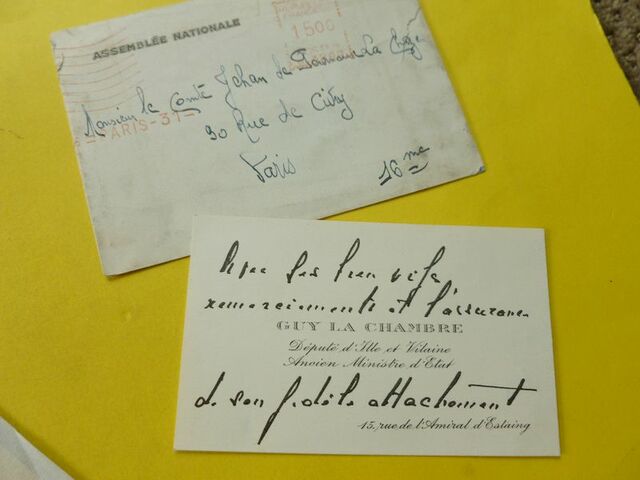 ASSEMBLÉE NATIONALE
1500
PARIS-31
Monsieur le Comte Jehan de
90 Rue de
Paris
16 me
Avec ses bien vifs
remerciements et l'assurance
GUY LA CHAMBRE
Député d'Ille et Vilaine
Ancien Ministre d'Etat
de son fidèle attachement
15, rue de l'Amiral d'Estaing